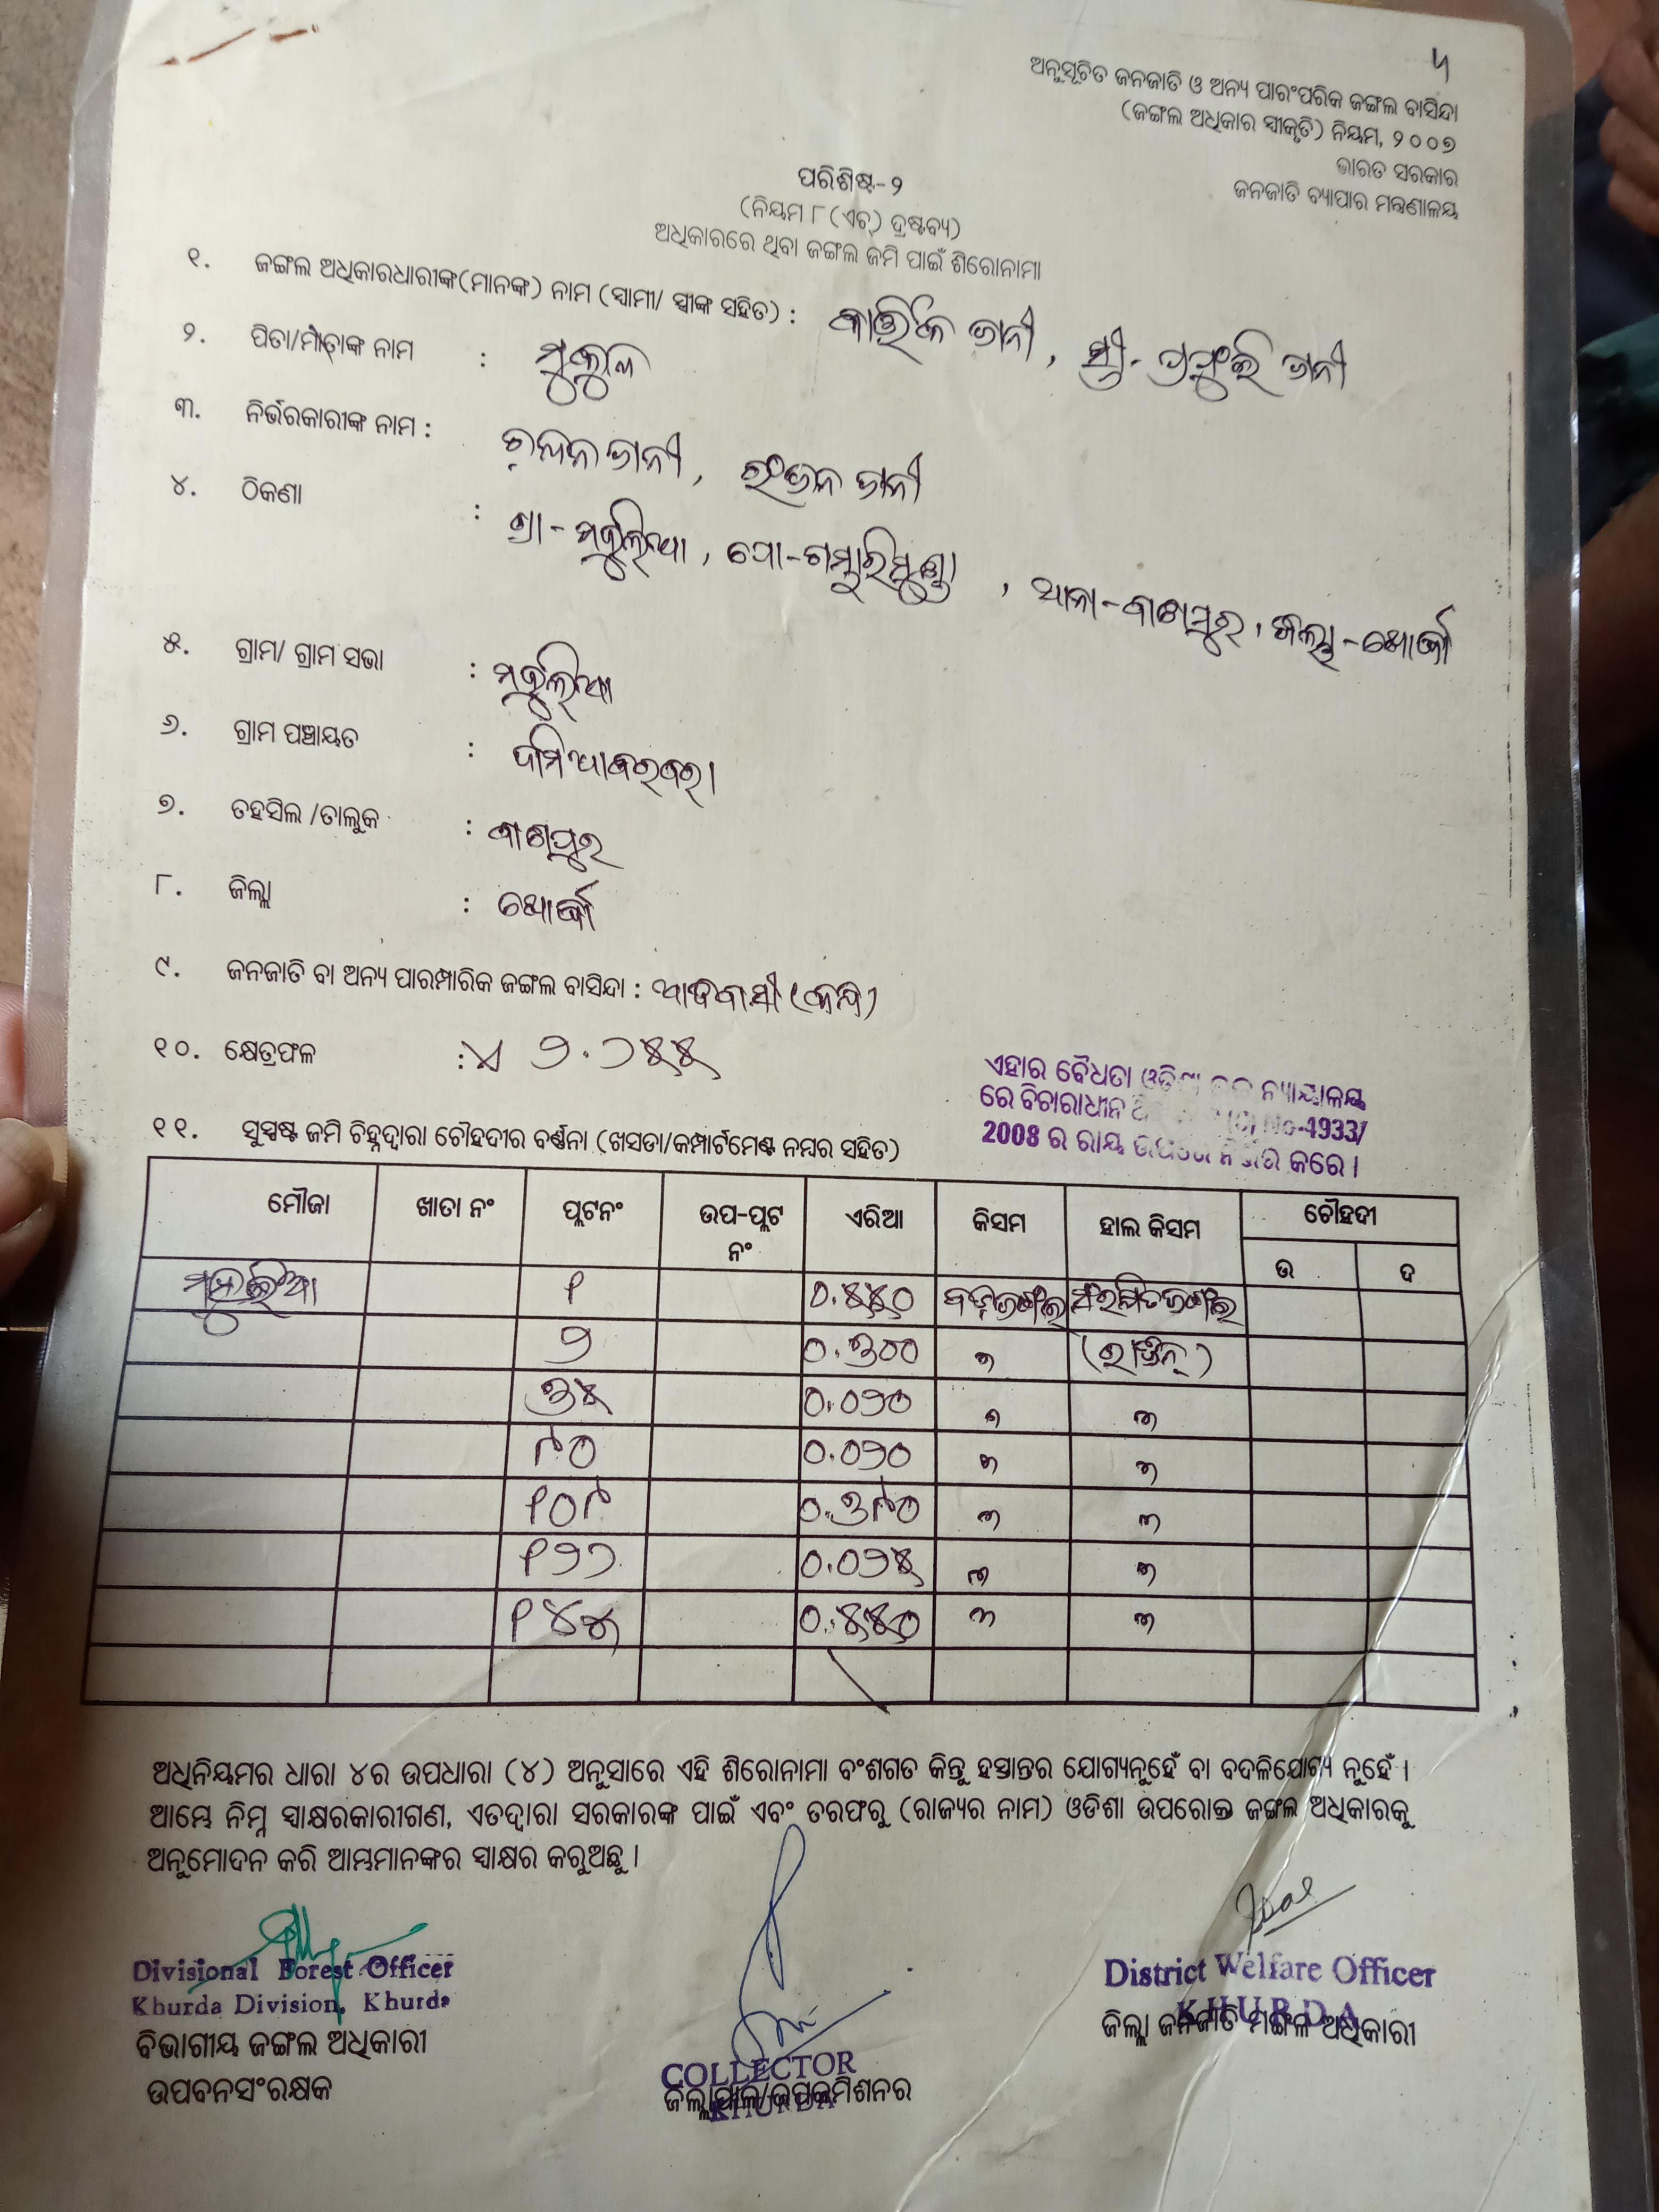 ୳
ଅନୁସୂଚିତ ଜନଜାତି ଓ ଅନ୍ୟ ପାରଂପରିକ ଜଙ୍ଗଲ ବାସିନ୍ଦା
(ଜଙ୍ଗଲ ଅଧିକାର ସ୍ୱୀକୃତି) ନିୟମ, ୨୦୦୭
ଭାରତ ସରକାର
ଜନଜାତି ବ୍ୟାପାର ମନ୍ତ୍ରଣାଳୟ
ପରିଶିଷ୍ଟ-୨
(ନିୟମ ୮ (ଏଚ୍) ଦ୍ରଷ୍ଟବ୍ୟ)
ଅଧିକାରରେ ଥିବା ଜଙ୍ଗଲ ଜମି ପାଇଁ ଶିରୋନାମା
୧. ଜଙ୍ଗଲ ଅଧିକାରଧାରୀଙ୍କ(ମାନଙ୍କ) ନାମ (ସ୍ୱାମୀ/ ସ୍ତ୍ରୀଙ୍କ ସହିତ) : କାର୍ତ୍ତିକ ଜାନୀ, ସ୍ତ୍ରୀ- ଜାନୀ
୨. ପିତା/ମାତାଙ୍କ ନାମ : ମୁକୁଳ
୩. ନିର୍ଭରକାରୀଙ୍କ ନାମ : ଜାନୀ, ରଂଜନ ଜାନୀ
୪. ଠିକଣା : ଗ୍ରା- , ପୋ-ଗମ୍ଭାରିମୁଣ୍ଡା, ଥାନା-ବାଣପୁର, ଜିଲ୍ଲା-ଖୋର୍ଦ୍ଧା
୫. ଗ୍ରାମ/ ଗ୍ରାମ ସଭା :
୬. ଗ୍ରାମ ପଞ୍ଚାୟତ : ଦାମିଆବରବରା
୭. ତହସିଲ /ତାଲୁକ : ବାଣପୁର
୮. ଜିଲ୍ଲା : ଖୋର୍ଦ୍ଧା
୯. ଜନଜାତି ବା ଅନ୍ୟ ପାରମ୍ପାରିକ ଜଙ୍ଗଲ ବାସିନ୍ଦା : ଆଦିବାସୀ (କନ୍ଧ)
୧୦. କ୍ଷେତ୍ରଫଳ : ଏ ୨.୨୫୫
ଏହାର ବୈଧତା ନ୍ୟାୟାଳୟ
ରେ ବିଚାରାଧୀନ No-4933/
2008 ର ରାୟ ଉପରେ ନିର୍ଭର କରେ ।
୧୧. ସୁସ୍ପଷ୍ଟ ଜମି ଚିହ୍ନଦ୍ୱାରା ଚୌହଦୀର ବର୍ଣ୍ଣନା (ଖସଡା/କମ୍ପାର୍ଟମେଣ୍ଟ ନମ୍ବର ସହିତ)
ମୌଜା ଖାତା ନଂ ପ୍ଲଟନଂ ଉପ-ପ୍ଲଟ ନଂ ଏରିଆ କିସମ ହାଲ କିସମ ଚୌହଦୀ
ଉ ଦ
୧ ୦.୫୫୦ ସଂରକ୍ଷିତଜଙ୍ଗଲ
୨ ୦.୩୦୦ ”
୩୫ ୦.୦୨୦ ” ”
୯୦ ୦.୦୨୦ ” ”
୧୦୯ ୦.୩୯୦ ” ”
୧୨୨ ୦.୦୨୫ ” ”
୧୪୫ ୦.୫୫୦ ” ”
ଅଧିନିୟମର ଧାରା ୪ର ଉପଧାରା (୪) ଅନୁସାରେ ଏହି ଶିରୋନାମା ବଂଶଗତ କିନ୍ତୁ ହସ୍ତାନ୍ତର ଯୋଗ୍ୟନୁହେଁ ବା ବଦଳିଯୋଗ୍ୟ ନୁହେଁ ।
ଆମ୍ଭେ ନିମ୍ନ ସ୍ୱାକ୍ଷରକାରୀଗଣ, ଏତଦ୍ୱାରା ସରକାରଙ୍କ ପାଇଁ ଏବଂ ତରଫରୁ (ରାଜ୍ୟର ନାମ) ଓଡିଶା ଉପରୋକ୍ତ ଜଙ୍ଗଲ ଅଧିକାରକୁ
ଅନୁମୋଦନ କରି ଆମ୍ଭମାନଙ୍କର ସ୍ୱାକ୍ଷର କରୁଅଛୁ ।
Divisional Forest Officer
Khurda Division, Khurda
ବିଭାଗୀୟ ଜଙ୍ଗଲ ଅଧିକାରୀ
ଉପବନସଂରକ୍ଷକ
COLLECTOR
KHURDA
ଜିଲ୍ଲାପାଳ/ଉପକମିଶନର
District Welfare Officer
KHURDA
ଜିଲ୍ଲା ଜନଜାତି ମଙ୍ଗଳ ଅଧିକାରୀ